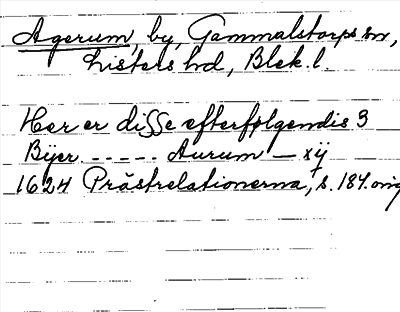 Agerum, by, Gammalstorps sn,
Listers hd, Blek. l.
Her er disse efterfølgendis 3
Bÿer. ----- Aurum — xij
1624 Prästrelationerna, s. 184. orig